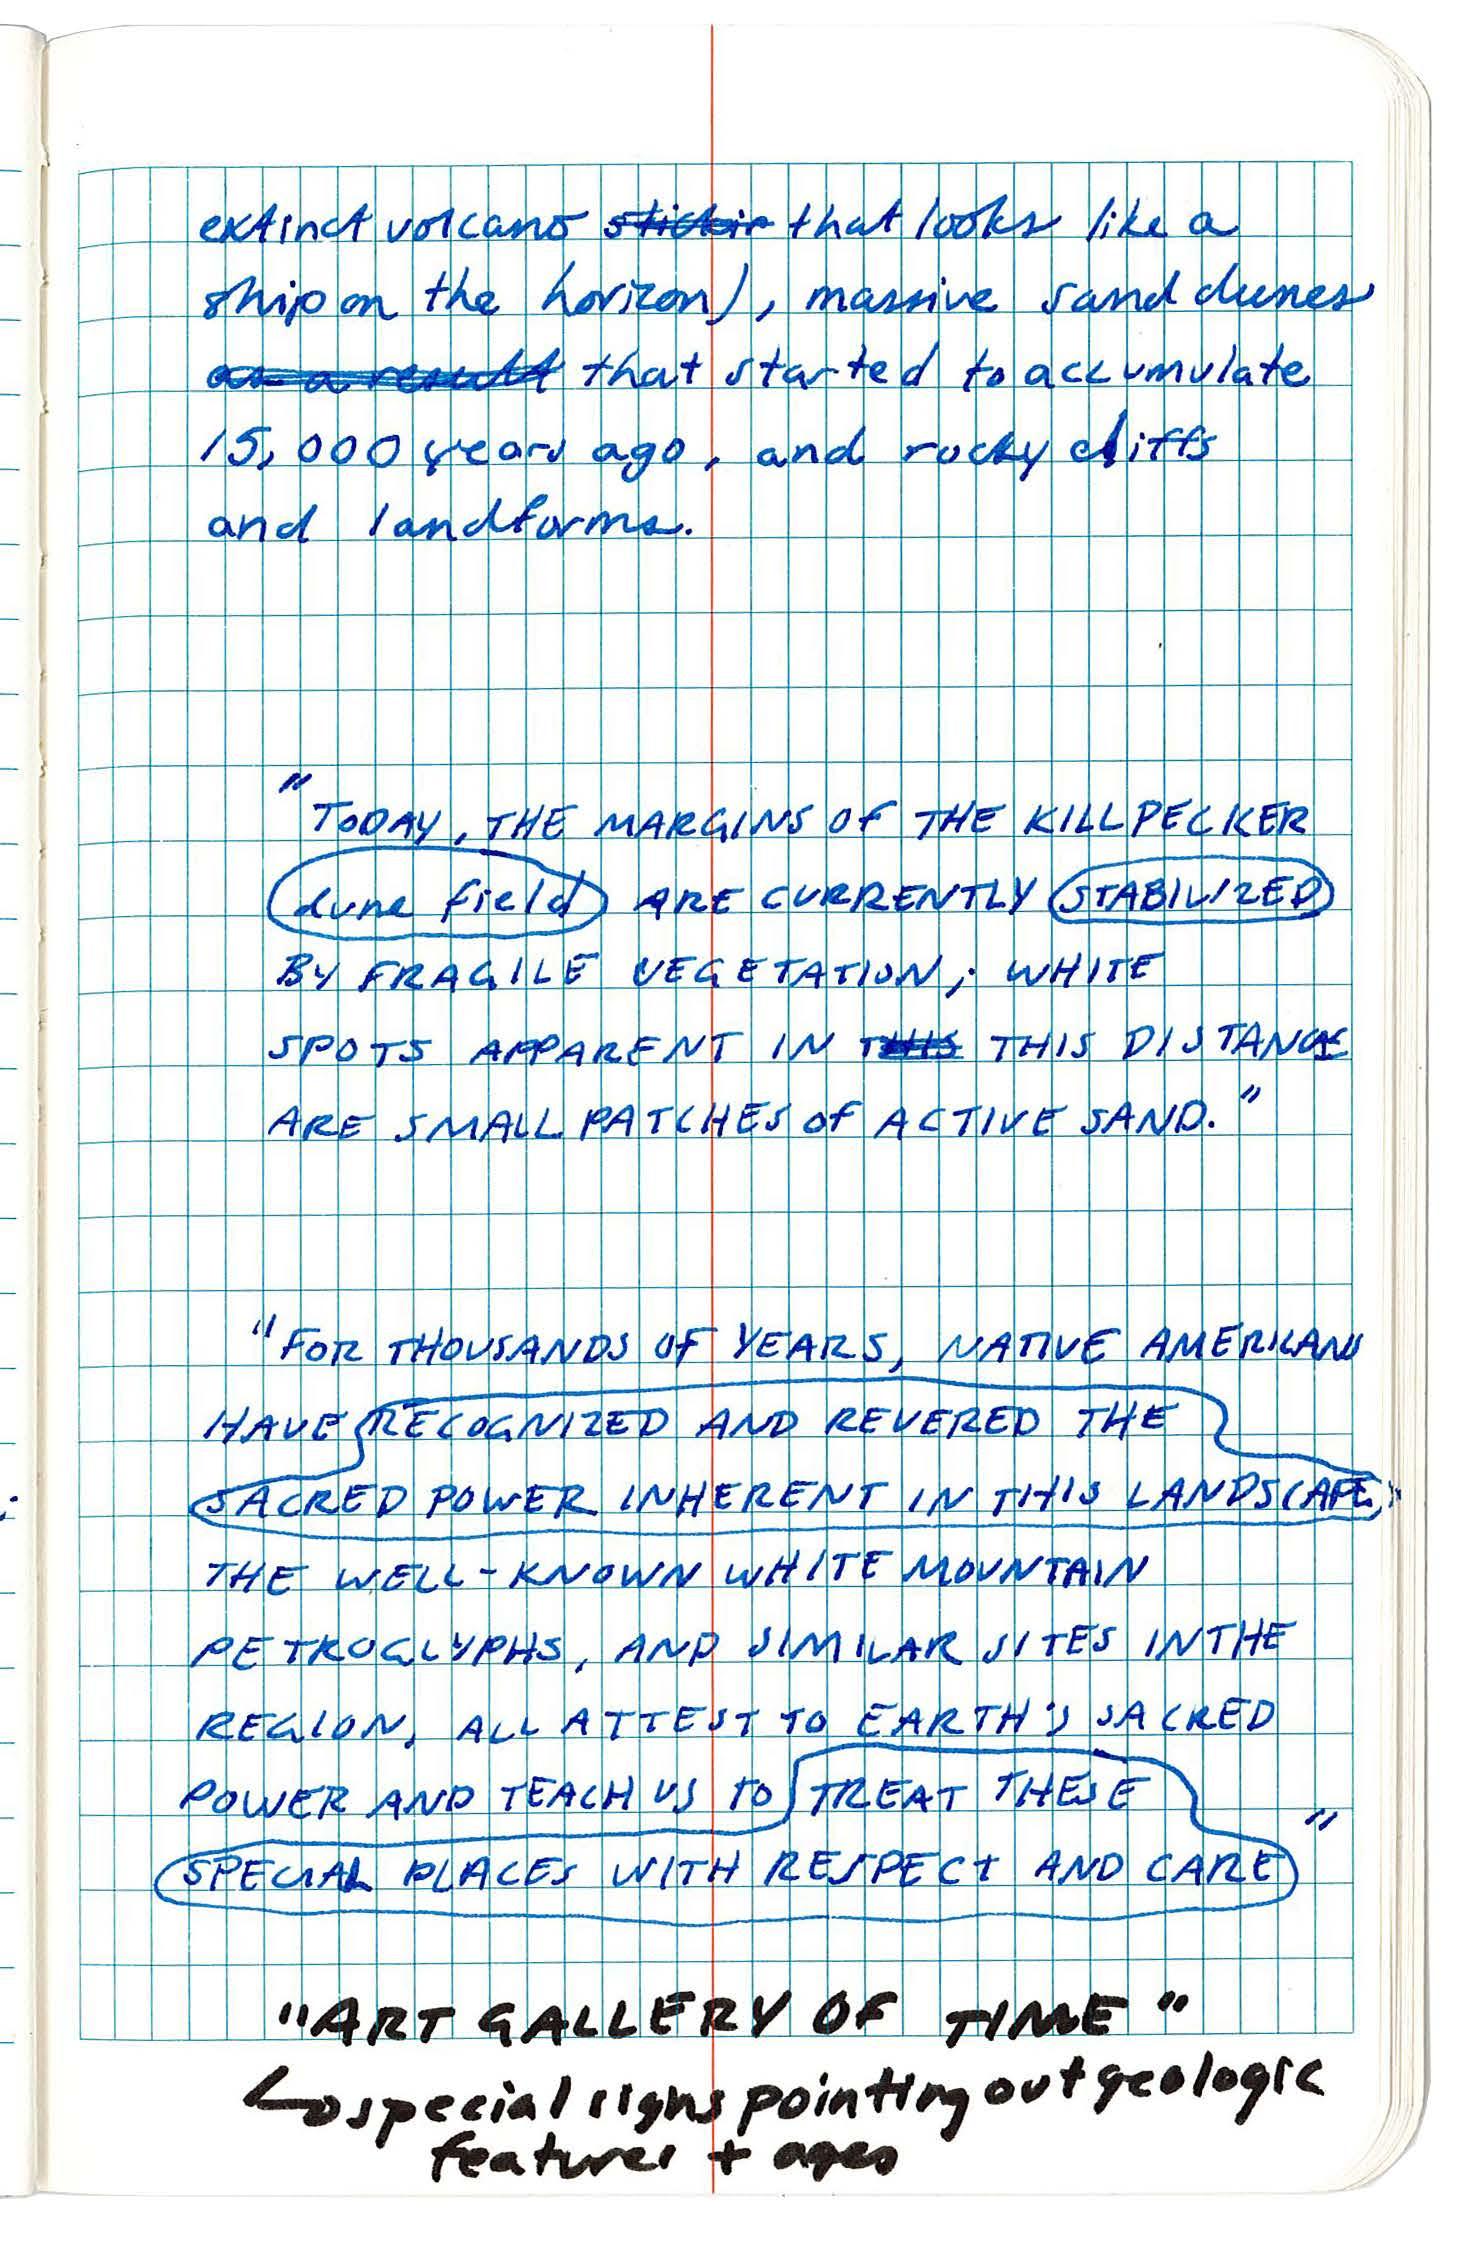 extinct volcano that looks like a
ship on the horizon), massive sand dunes
as a result that started to accumulate
15,000 years ago, and rocky cliffs
and landforms.
"TODAY, THE MARGINS OF THE KILLPECKER
dune field ARE CURRENTLY STABILIZED
BY FRAGILE VEGETATION; WHITE
SPOTS APPARENT IN THIS THIS DISTANCE
ARE SMALL PATCHES OF ACTIVE SAND."
"FOR THOUSANDS OF YEARS, NATIVE AMERICANS
HAVE RECOGNIZED AND REVERED THE
SACRED POWER INHERENT IN THIS LANDSCAPE.
THE WELL-KNOWN WHITE MOUNTAIN
PETROGLYPHS, AND SIMILAR SITES IN THE
REGION, ALL ATTEST TO EARTH'S SACRED
POWER AND TEACH US TO TREAT THESE
SPECIAL PLACES WITH RESPECT AND CARE"
"ART GALLERY OF TIME"
special signs pointing out geologic
features + ages